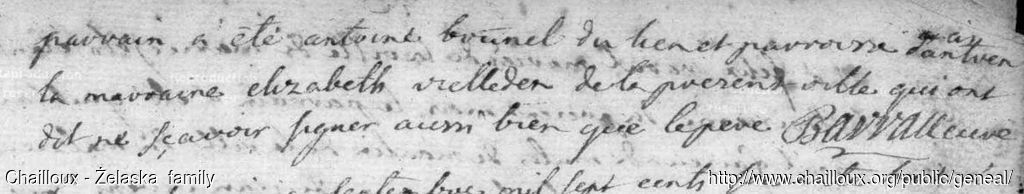 parrain a été antoine brunel du lieu et parroisse d'antren
la marraine elizabeth vielleden de la presente ville qui ont
dit ne sçavoir signer aussi bien que le pere Barrau cure
septembre mil sept cents
Chailloux - Želaska family
http://www.chailloux.org/public/geneal/